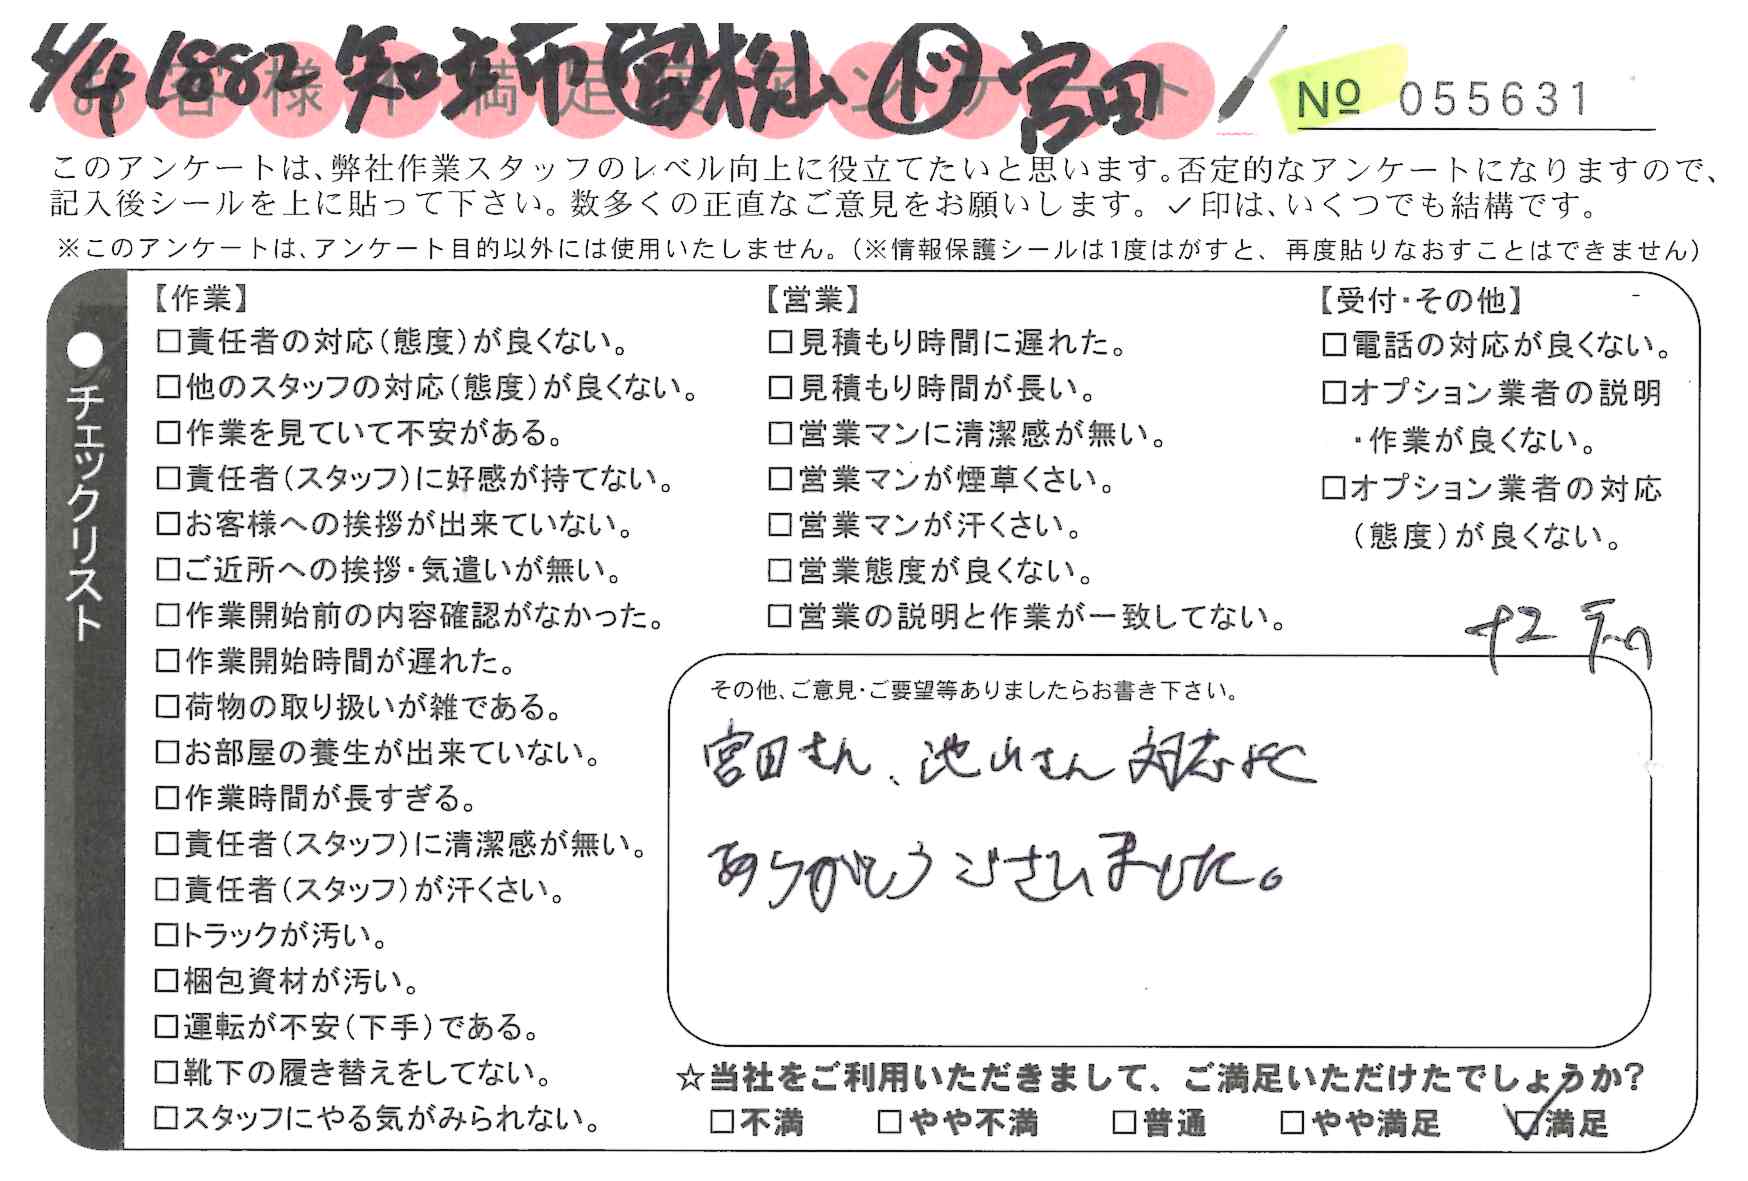 6/4 1882 知立市 営 松山 ド 宮田
お客様不満足度アンケート
№ 055631
このアンケートは、弊社作業スタッフのレベル向上に役立てたいと思います。否定的なアンケートになりますので、
記入後シールを上に貼って下さい。数多くの正直なご意見をお願いします。✓印は、いくつでも結構です。
※このアンケートは、アンケート目的以外には使用いたしません。(※情報保護シールは1度はがすと、再度貼りなおすことはできません)
●チェックリスト
【作業】
□責任者の対応(態度)が良くない。
□他のスタッフの対応(態度)が良くない。
□作業を見ていて不安がある。
□責任者(スタッフ)に好感が持てない。
□お客様への挨拶が出来ていない。
□ご近所への挨拶・気遣いが無い。
□作業開始前の内容確認がなかった。
□作業開始時間が遅れた。
□荷物の取り扱いが雑である。
□お部屋の養生が出来ていない。
□作業時間が長すぎる。
□責任者(スタッフ)に清潔感が無い。
□責任者(スタッフ)が汗くさい。
□トラックが汚い。
□梱包資材が汚い。
□運転が不安(下手)である。
□靴下の履き替えをしてない。
□スタッフにやる気がみられない。
【営業】
□見積もり時間に遅れた。
□見積もり時間が長い。
□営業マンに清潔感が無い。
□営業マンが煙草くさい。
□営業マンが汗くさい。
□営業態度が良くない。
□営業の説明と作業が一致してない。
【受付・その他】
□電話の対応が良くない。
□オプション業者の説明
・作業が良くない。
□オプション業者の対応
(態度)が良くない。
その他、ご意見・ご要望等ありましたらお書き下さい。
宮田さん、池山さん 対応よく
ありがとうございました。
☆当社をご利用いただきまして、ご満足いただけたでしょうか?
□不満 □やや不満 □普通 □やや満足 ☑満足